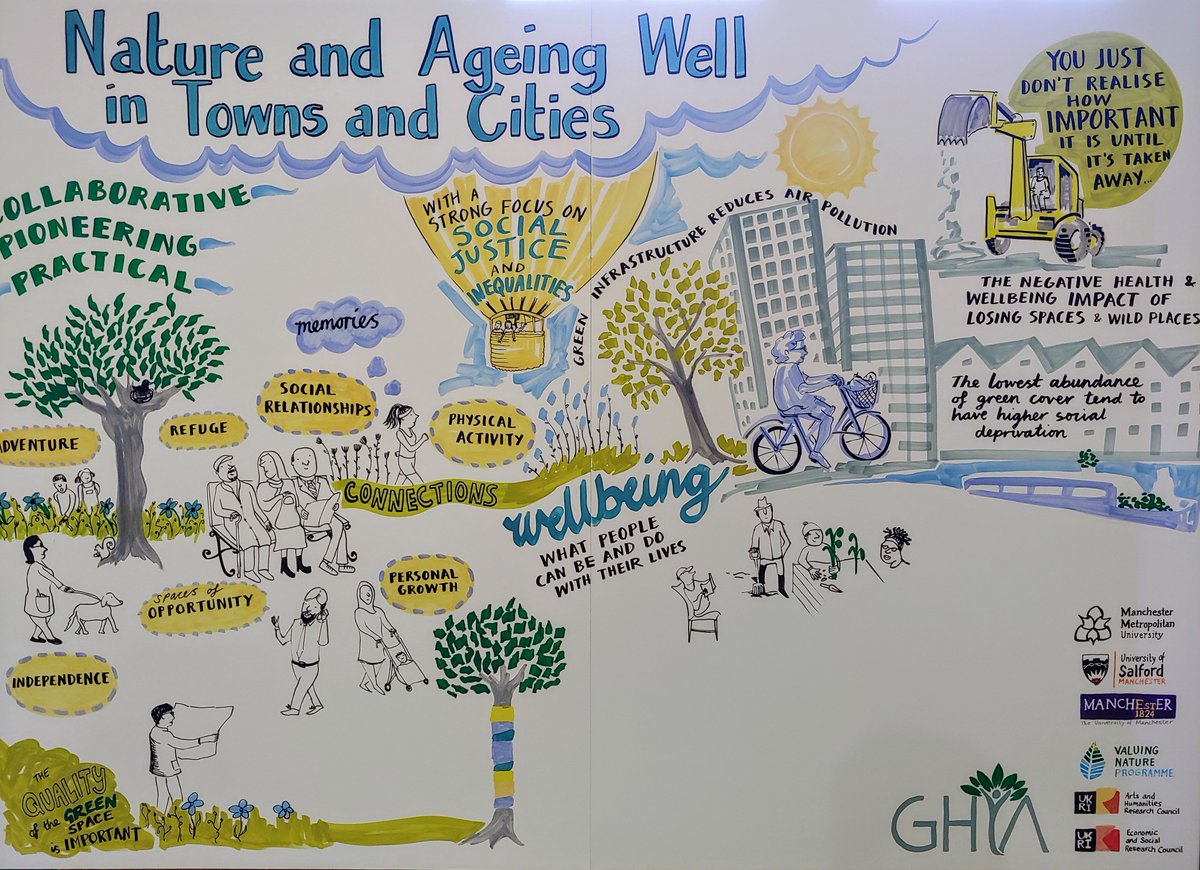 Nature and Ageing Well
in Towns and Cities
COLLABORATIVE
PIONEERING
PRACTICAL
WITH A
STRONG FOCUS ON
SOCIAL
JUSTICE
AND
INEQUALITIES
GREEN INFRASTRUCTURE REDUCES AIR POLLUTION
YOU JUST
DON'T REALISE
HOW
IMPORTANT
IT IS UNTIL
IT'S TAKEN
AWAY...
THE NEGATIVE HEALTH &
WELLBEING IMPACT OF
LOSING SPACES & WILD PLACES
The lowest abundance
of green cover tend to
have higher social
deprivation
memories
SOCIAL
RELATIONSHIPS
REFUGE
ADVENTURE
PHYSICAL
ACTIVITY
CONNECTIONS
wellbeing
WHAT PEOPLE
CAN BE AND DO
WITH THEIR LIVES
PERSONAL
GROWTH
spaces of
OPPORTUNITY
INDEPENDENCE
THE
QUALITY
of the GREEN
SPACE
is IMPORTANT
Manchester
Metropolitan
University
University of
Salford
MANCHESTER
MANCHESTER
1824
The University of Manchester
VALUING
NATURE
PROGRAMME
UK
RI
Arts and
Humanities
Research Council
UK
RI
Economic
and Social
Research Council
GHIA